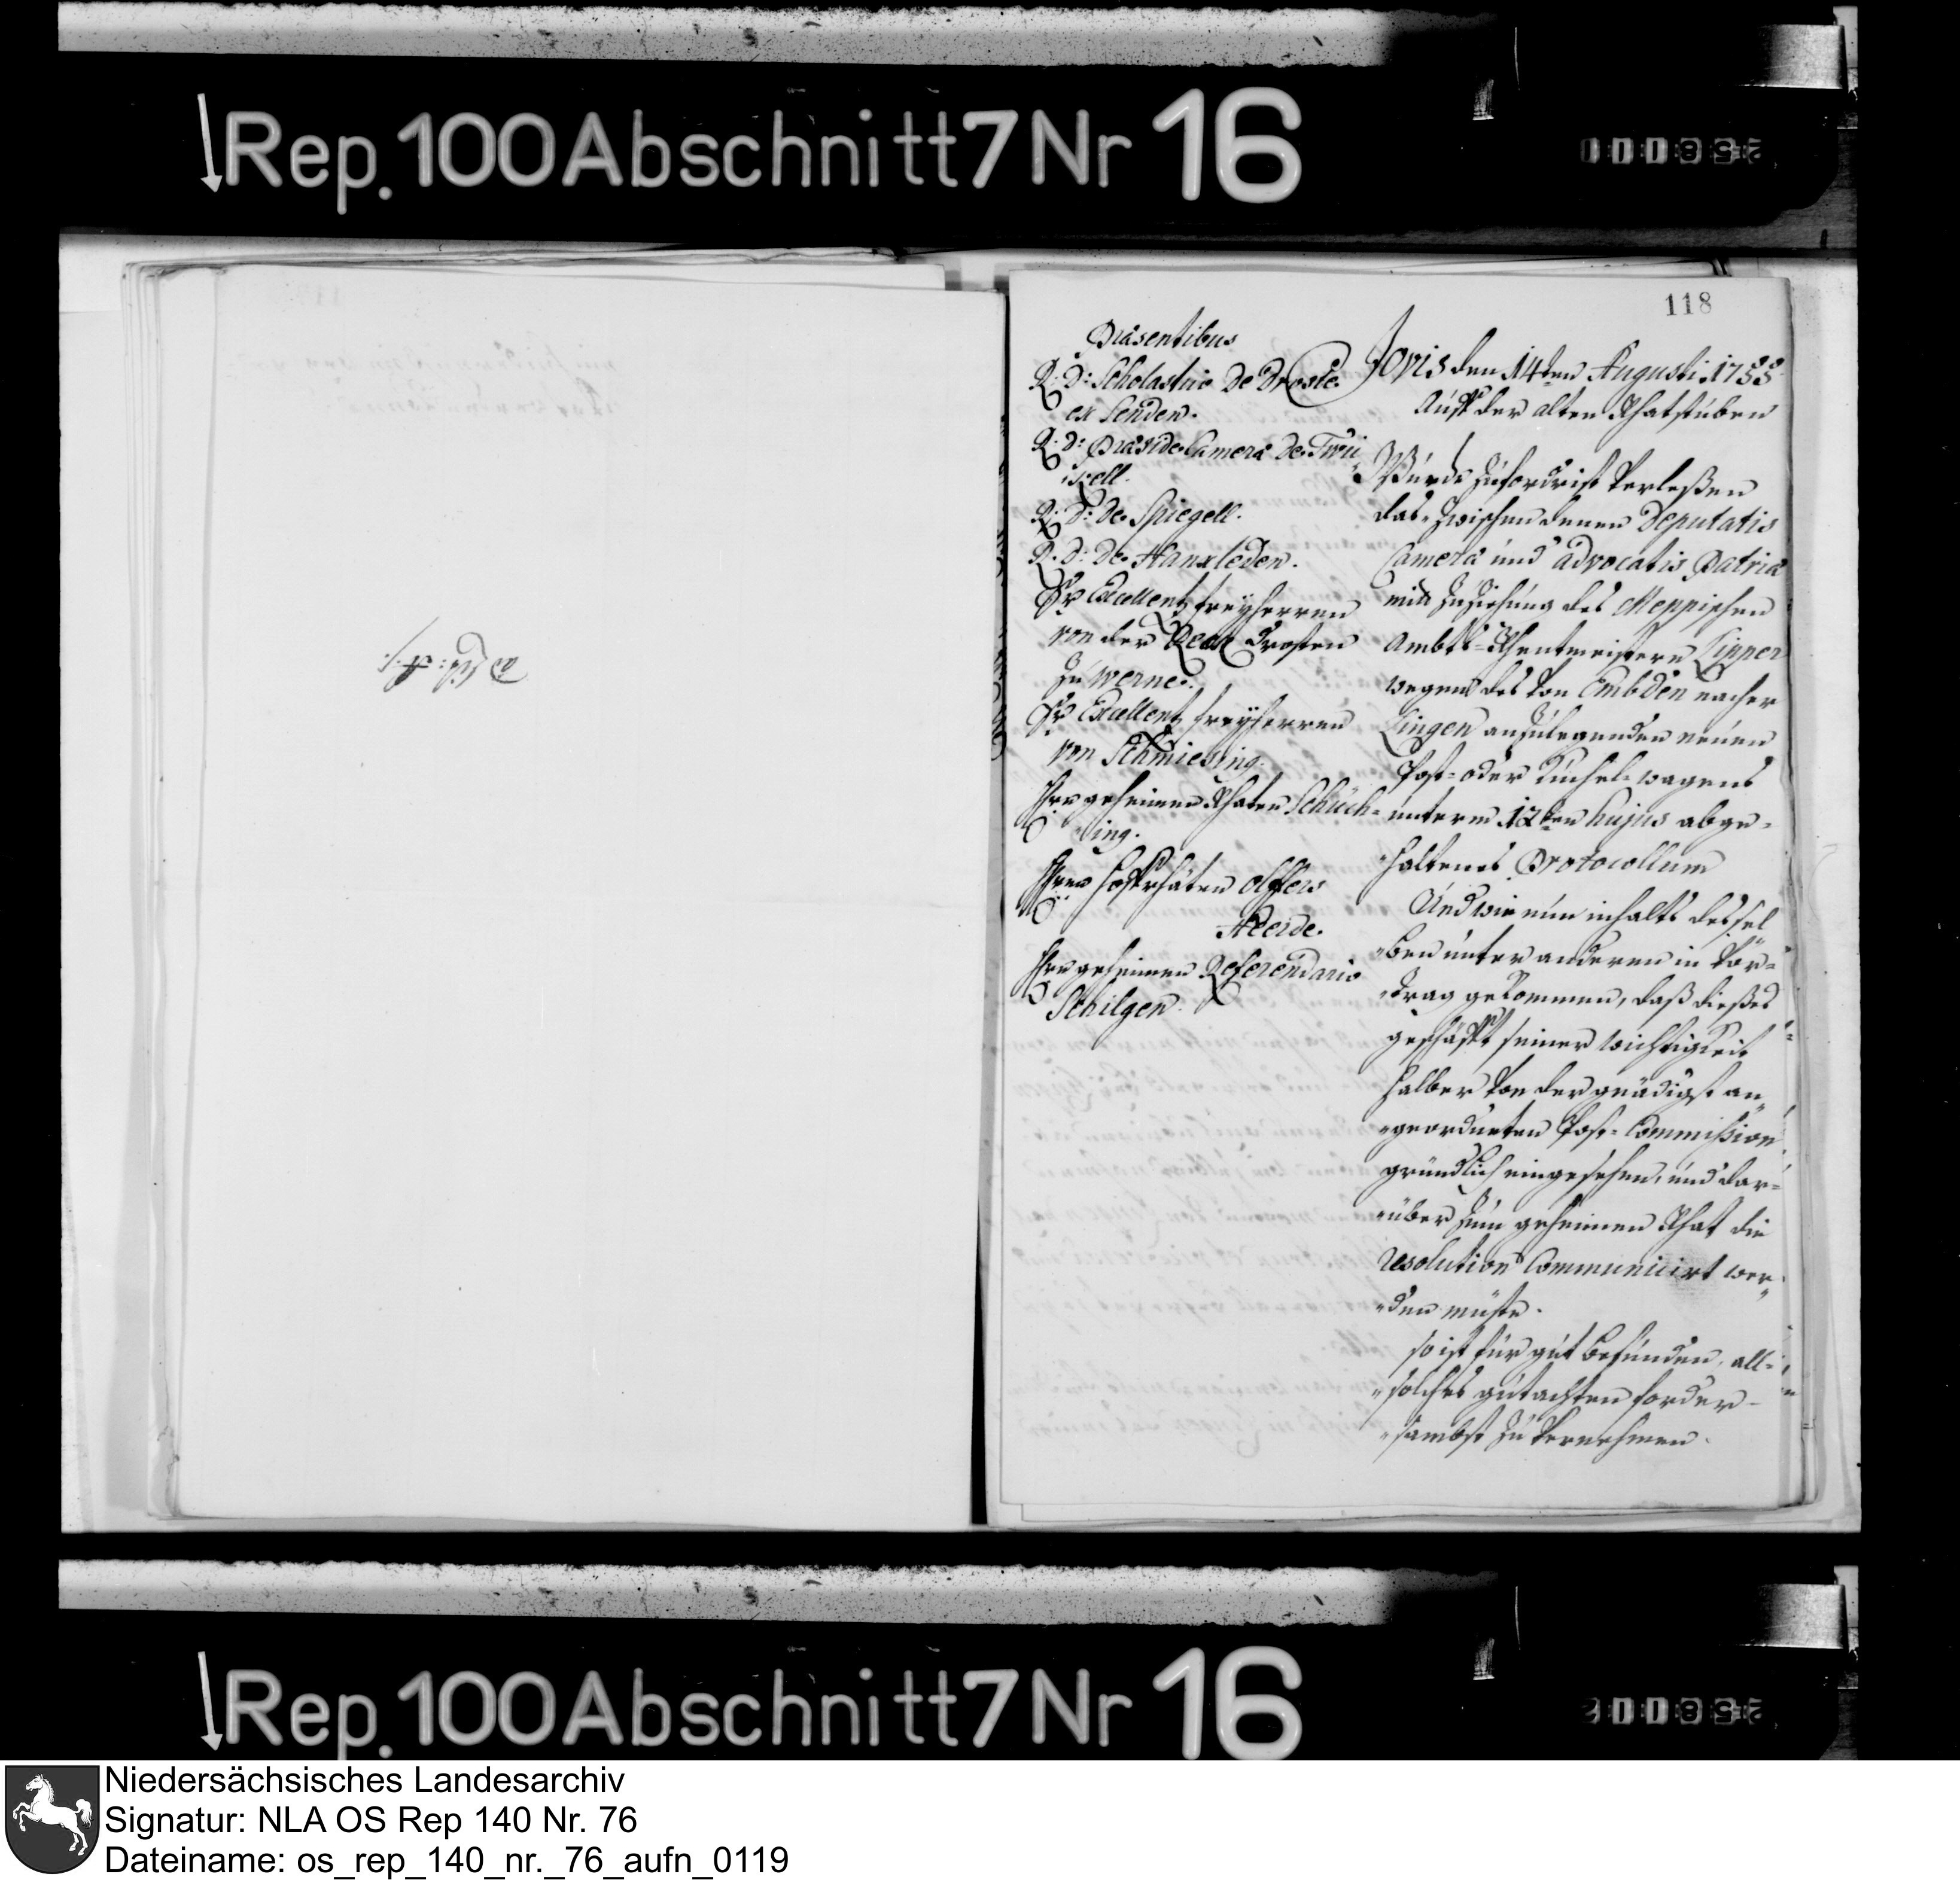 Rep. 100 Abschnitt 7 Nr 16
118
Præsentibus
R: D: Scholastrio de Droste
ex Senden.
R: D: Præside Cameræ de Twi
ckell.
R: D: de Spiegell.
R: D: de Hanxleden.
Sr Excellentz freyherren
von der Reck Drosten
zu Werne.
Sr Excellentz freyherren
von Schmiesing.
Hrn geheimen Rhaten Schück=
ing.
Hren hoffrhäten Olffers
Heerde.
Hrn geheimen Referendario
Schilgen.
Jovis den 14ten Augusti 1755
Auff der alten Rhatstuben
Würde zuforderist verleßen
das zwischen denen Deputatis
Cameræ und advocatis Patriæ
mitt zuziehung des Meppischen
Ambts=Rhentmeistern Lipper
wegens des von Embden nacher
Lingen anzulegenden neuen
Post= oder Küchel=wagens
unterm 12ten hujus abge=
haltenes Protocollum
Und wie nun inhalts dessel
ben unter anderen in vor=
trag gekommen, daß dießes
geschäfft seiner wichtigkeit
halber von der gnädigst an
geordneten Post=Commission
gründlich eingesehen, und dar=
über zum geheimen Rhat die
resolution Communicirt wer
den müste.
so ist für gut befunden, all=
solches gutachten forder=
sambst zu vernehmen.
Rep. 100 Abschnitt 7 Nr 16
Niedersächsisches Landesarchiv
Signatur: NLA OS Rep 140 Nr. 76
Dateiname: os_rep_140_nr._76_aufn_0119